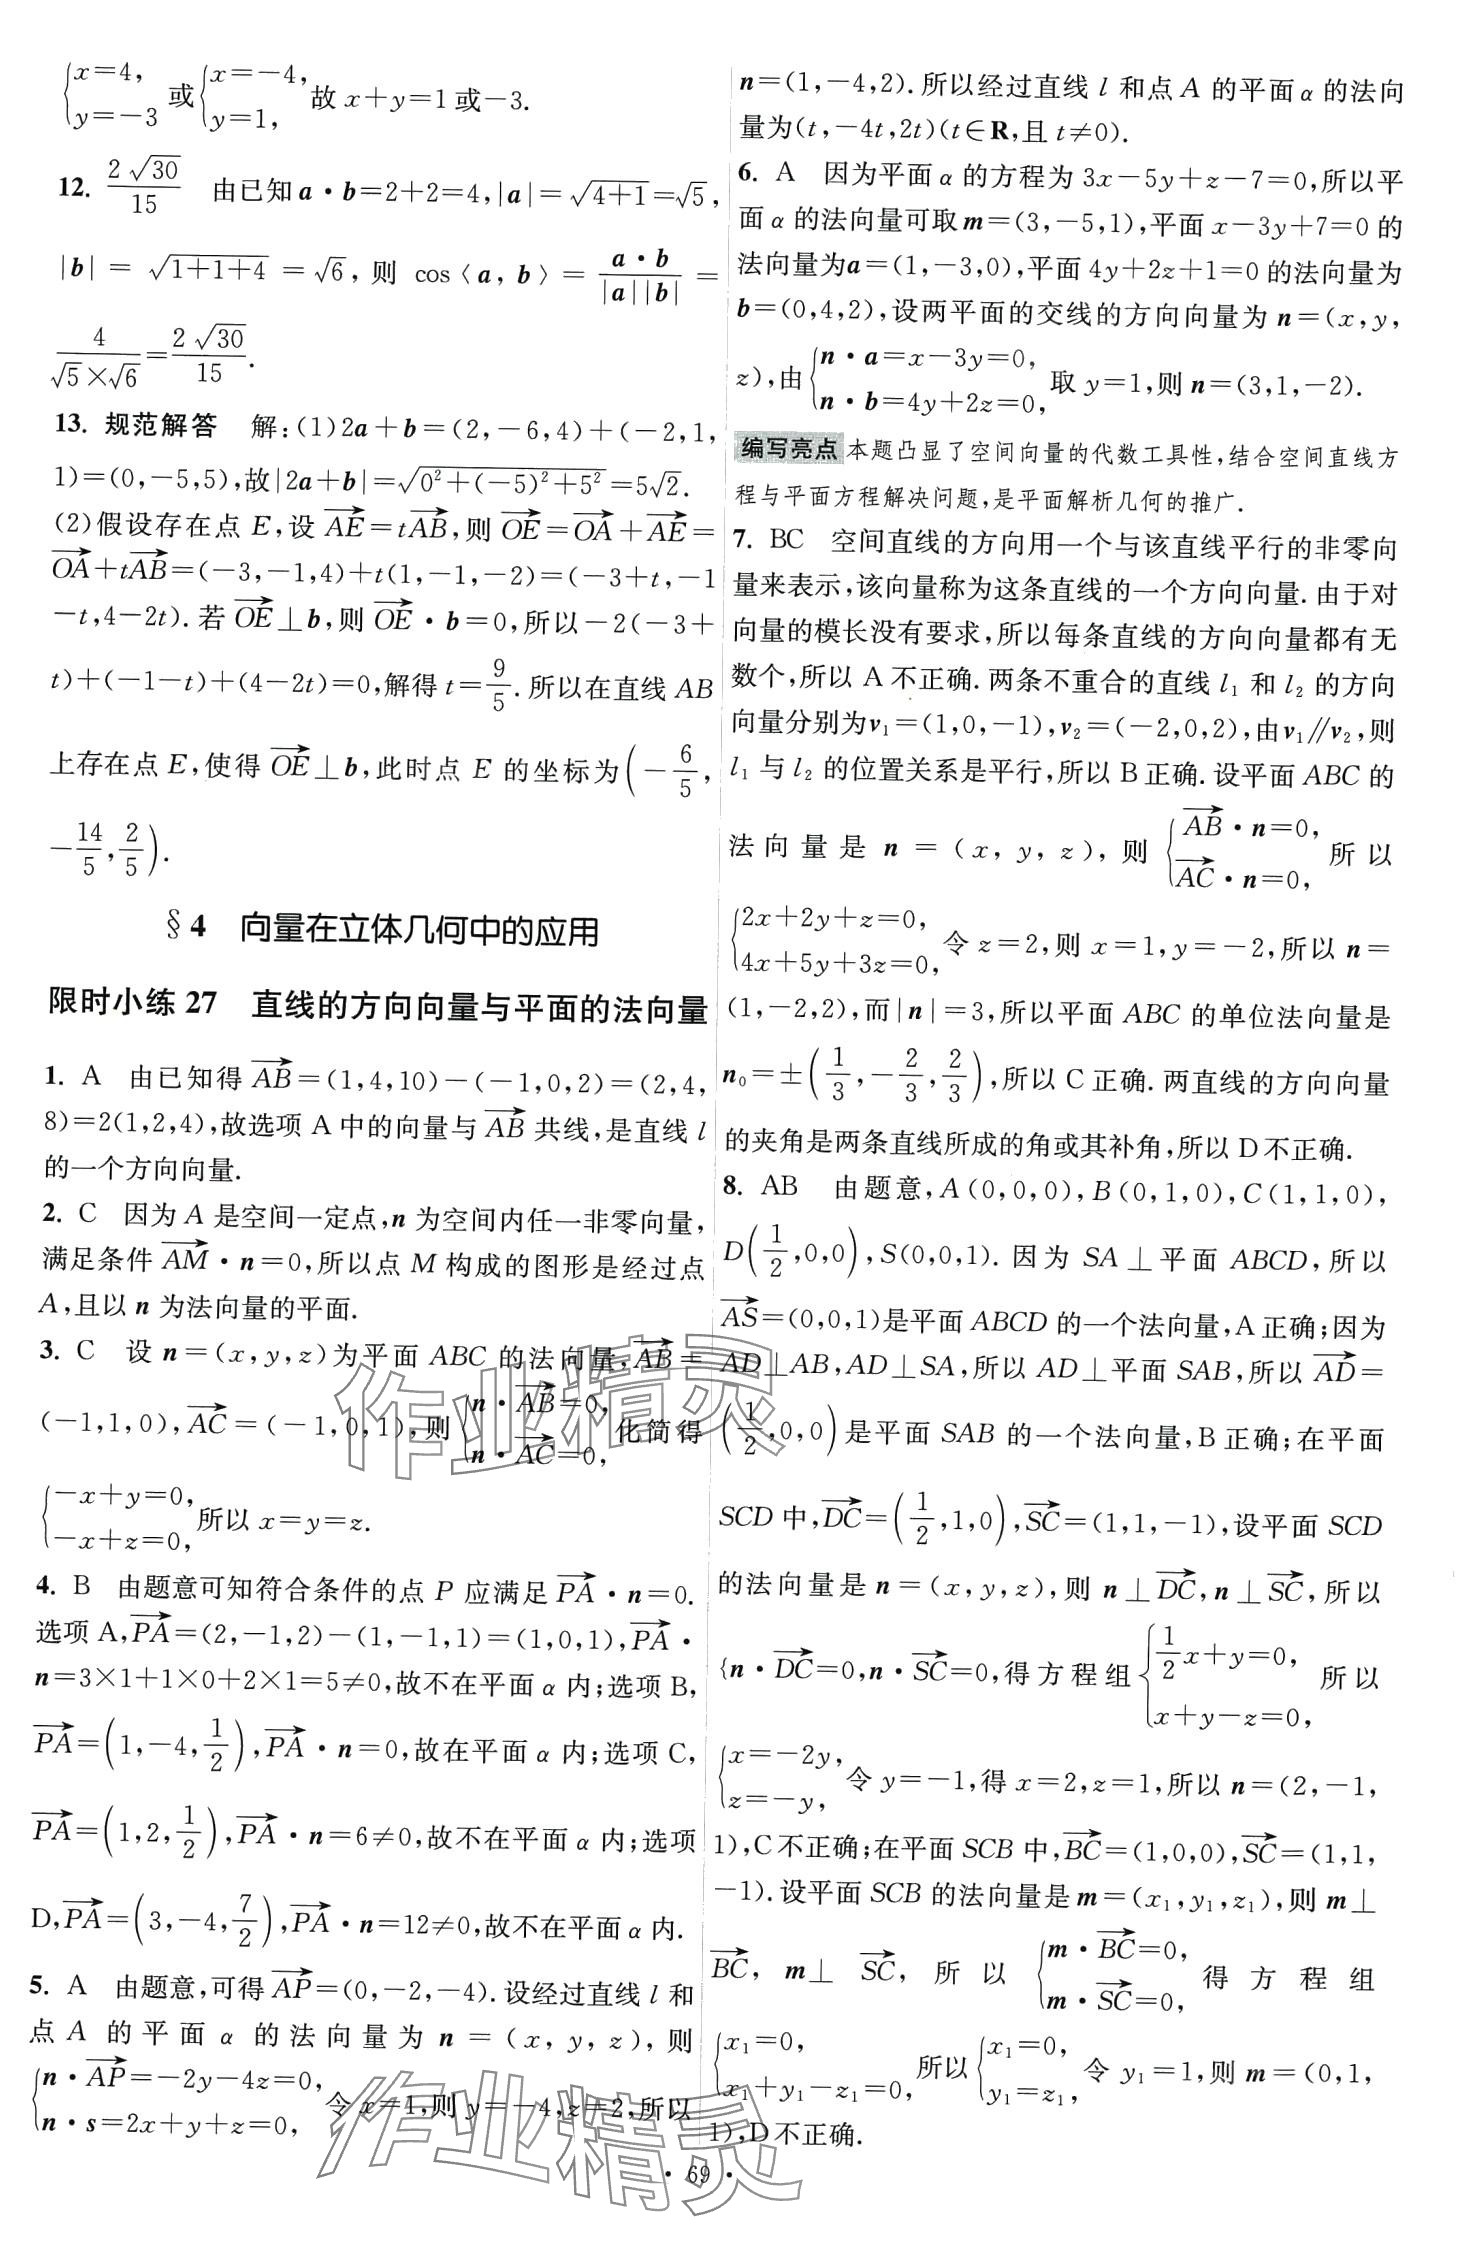 {x=4, y=-3 或 {x=-4, y=1, 故 x+y=1 或-3.
12. 2√30/15 由已知 a·b=2+2=4,|a|=√(4+1)=√5,
|b|=√(1+1+4)=√6,则 cos〈a,b〉=a·b/(|a||b|)=
4/(√5×√6)=2√30/15.
13. 规范解答 解:(1)2a+b=(2,-6,4)+(-2,1,
1)=(0,-5,5),故|2a+b|=√(0²+(-5)²+5²)=5√2.
(2)假设存在点 E,设 AE→=tAB→,则 OE→=OA→+AE→=
OA→+tAB→=(-3,-1,4)+t(1,-1,-2)=(-3+t,-1
-t,4-2t).若 OE→⊥b,则 OE→·b=0,所以-2(-3+
t)+(-1-t)+(4-2t)=0,解得 t=9/5.所以在直线 AB
上存在点 E,使得 OE→⊥b,此时点 E 的坐标为(-6/5,
-14/5,2/5).
§4 向量在立体几何中的应用
限时小练 27 直线的方向向量与平面的法向量
1. A 由已知得 AB→=(1,4,10)-(-1,0,2)=(2,4,
8)=2(1,2,4),故选项 A 中的向量与 AB→ 共线,是直线 l
的一个方向向量.
2. C 因为 A 是空间一定点,n 为空间内任一非零向量,
满足条件 AM→·n=0,所以点 M 构成的图形是经过点
A,且以 n 为法向量的平面.
3. C 设 n=(x,y,z)为平面 ABC 的法向量,AB→=
(-1,1,0),AC→=(-1,0,1),则{n·AB→=0, n·AC→=0, 化简得
{-x+y=0, -x+z=0, 所以 x=y=z.
4. B 由题意可知符合条件的点 P 应满足 PA→·n=0.
选项 A,PA→=(2,-1,2)-(1,-1,1)=(1,0,1),PA→·
n=3×1+1×0+2×1=5≠0,故不在平面 α 内;选项 B,
PA→=(1,-4,1/2),PA→·n=0,故在平面 α 内;选项 C,
PA→=(1,2,1/2),PA→·n=6≠0,故不在平面 α 内;选项
D,PA→=(3,-4,7/2),PA→·n=12≠0,故不在平面 α 内.
5. A 由题意,可得 AP→=(0,-2,-4).设经过直线 l 和
点 A 的平面 α 的法向量为 n=(x,y,z),则
{n·AP→=-2y-4z=0, n·s=2x+y+z=0, 令 x=1,则 y=-4,z=2,所以
n=(1,-4,2).所以经过直线 l 和点 A 的平面 α 的法向
量为(t,-4t,2t)(t∈R,且 t≠0).
6. A 因为平面 α 的方程为 3x-5y+z-7=0,所以平
面 α 的法向量可取 m=(3,-5,1),平面 x-3y+7=0 的
法向量为a=(1,-3,0),平面 4y+2z+1=0 的法向量为
b=(0,4,2),设两平面的交线的方向向量为 n=(x,y,
z),由{n·a=x-3y=0, n·b=4y+2z=0, 取 y=1,则 n=(3,1,-2).
编写亮点 本题凸显了空间向量的代数工具性,结合空间直线方
程与平面方程解决问题,是平面解析几何的推广.
7. BC 空间直线的方向用一个与该直线平行的非零向
量来表示,该向量称为这条直线的一个方向向量.由于对
向量的模长没有要求,所以每条直线的方向向量都有无
数个,所以 A 不正确.两条不重合的直线 l₁ 和 l₂ 的方向
向量分别为v₁=(1,0,-1),v₂=(-2,0,2),由v₁∥v₂,则
l₁ 与 l₂ 的位置关系是平行,所以 B 正确.设平面 ABC 的
法向量是 n=(x,y,z),则{AB→·n=0, AC→·n=0, 所以
{2x+2y+z=0, 4x+5y+3z=0, 令 z=2,则 x=1,y=-2,所以 n=
(1,-2,2),而|n|=3,所以平面 ABC 的单位法向量是
n₀=±(1/3,-2/3,2/3),所以 C 正确.两直线的方向向量
的夹角是两条直线所成的角或其补角,所以 D 不正确.
8. AB 由题意,A(0,0,0),B(0,1,0),C(1,1,0),
D(1/2,0,0),S(0,0,1).因为 SA⊥平面 ABCD,所以
AS→=(0,0,1)是平面 ABCD 的一个法向量,A 正确;因为
AD⊥AB,AD⊥SA,所以 AD⊥平面 SAB,所以 AD→=
(1/2,0,0)是平面 SAB 的一个法向量,B 正确;在平面
SCD 中,DC→=(1/2,1,0),SC→=(1,1,-1),设平面 SCD
的法向量是 n=(x,y,z),则 n⊥DC→,n⊥SC→,所以
{n·DC→=0,n·SC→=0,得方程组{1/2x+y=0, x+y-z=0, 所以
{x=-2y, z=-y, 令 y=-1,得 x=2,z=1,所以 n=(2,-1,
1),C 不正确;在平面 SCB 中,BC→=(1,0,0),SC→=(1,1,
-1).设平面 SCB 的法向量是 m=(x₁,y₁,z₁),则 m⊥
BC→,m⊥SC→,所以{m·BC→=0, m·SC→=0, 得方程组
{x₁=0, x₁+y₁-z₁=0, 所以{x₁=0, y₁=z₁, 令 y₁=1,则 m=(0,1,
1),D 不正确.
· 69 ·
作业精灵
作业精灵